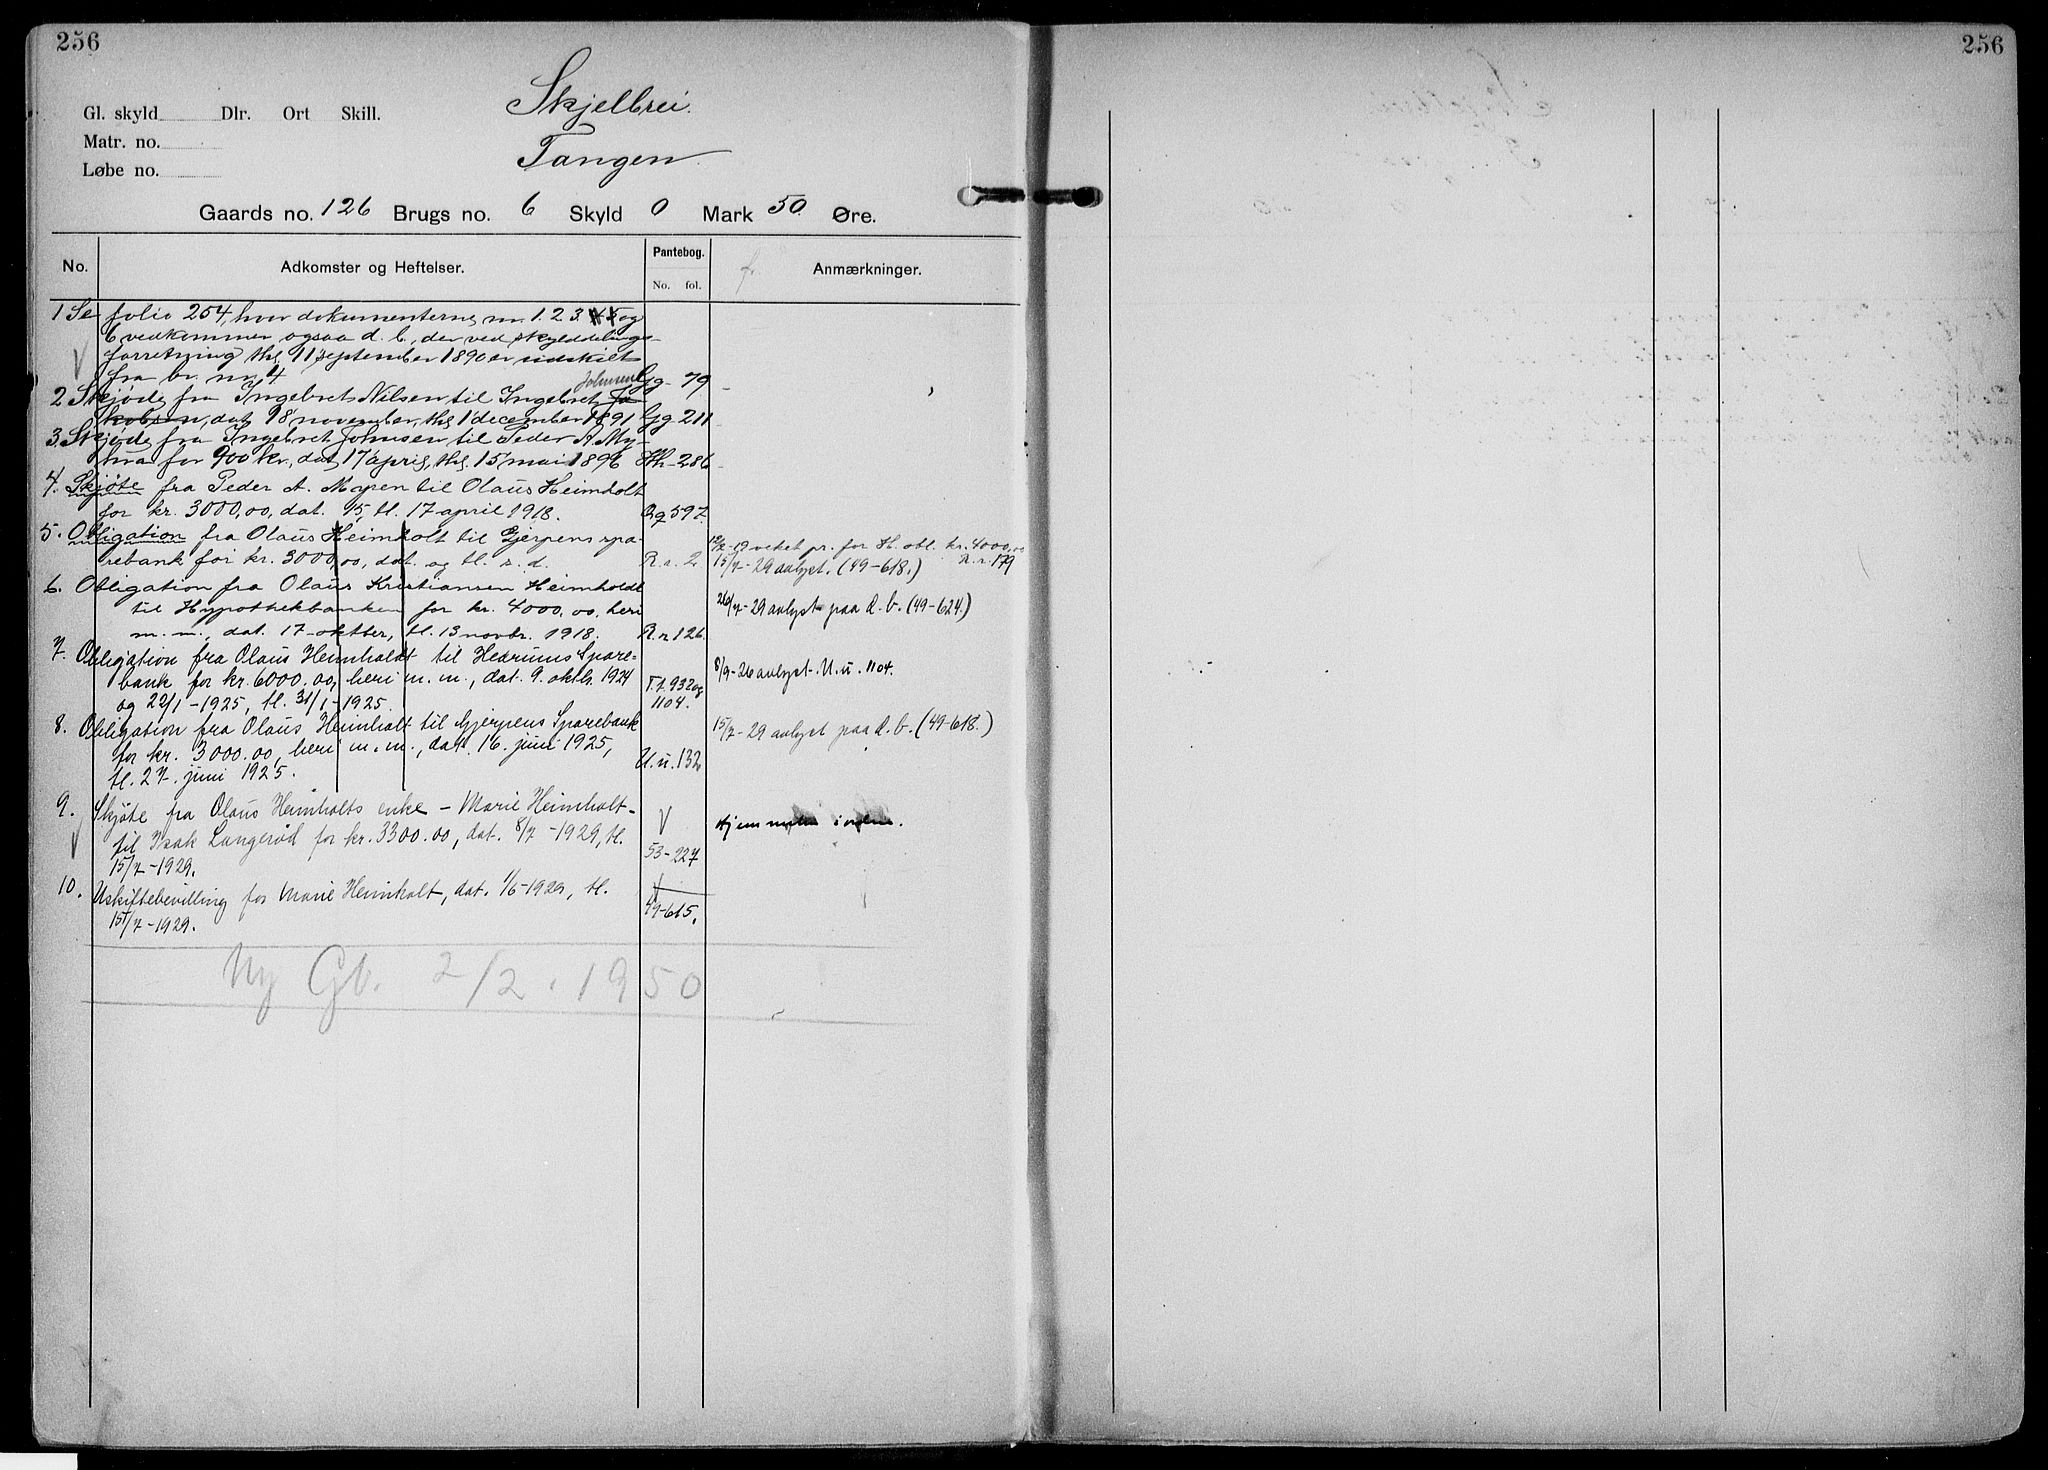 256
256
Skjelbrei.
Gl. skyld Dlr. Ort Skill.
Matr. no.
Tangen
Løbe no.
Gaards no. 126 Brugs no. 6 Skyld 0 Mark 50 Øre.
No. Adkomster og Heftelser. Pantebog. Anmærkninger.
No. fol.
1 Se folio 254, hvor dokumenterne nr. 1. 2 3. og
6 vedkommer ogsaa d. b., der ved skylddelings-
forretning thl. 11 september 1890 er udskilt
fra br. nr. 4 Gg - 79
Johnsen
2 Skjøde fra Ingebret Nilsen til Ingebret Ja-
kobsen, dat 18 november, thl. 1 december 1891 Gg 211
3. Skjøde fra Ingebret Johnsen til Peder A. My-
hra for 900 kr., dat 17 april, thl. 15 mai 1896 Hh - 286
4. Skjøte fra Peder A. Myren til Olaus Heimholt
for kr. 3000,00, dat. 15, tl. 17 april 1918. Qq 597.
5. Obligation fra Olaus Heimholt til Gjerpens spa-
rebank for kr. 3000,00, dat. og tl. s. d. R. r. 2
12/2-19 veket pr. for H. obl. kr. 4000,00
15/7-29 avlyst. (49-618.) R. r. 179
6. Obligation fra Olaus Kristiansen Heimholdt
til Hypothekbanken for kr. 4000,00, heri
m. m., dat. 17-oktber, tl. 13 novbr. 1918. R. r 126.
26/7-29 avlyst paa d. b. (49-624.)
7. Obligation fra Olaus Heimholdt til Hedrums Spare-
bank for kr. 6000.00, heri m. m., dat. 9. oktb. 1924
og 22/1-1925, tl. 31/1-1925. T. t. 932 og
1104.
8/9-26 avlyst. U. u. 1104.
8. Obligation fra Olaus Heimholt til Gjerpens Sparebank
for kr. 3000.00, heri m. m., dat. 16. juni 1925,
tl. 27. juni 1925. U. u. 132
15/7-29 avlyst paa d. b. (49-618.)
9. Skjøte fra Olaus Heimholts enke – Marie Heimholt –
til Isak Langerød for kr. 3300.00, dat. 8/7-1929, tl.
15/7-1929. 53-227
Hjemmelen i orden.
10. Uskiftebevilling for Marie Heimholt, dat. 1/6-1929, tl.
15/7-1929. 49-615.
Ny Gb. 2/2. 1950